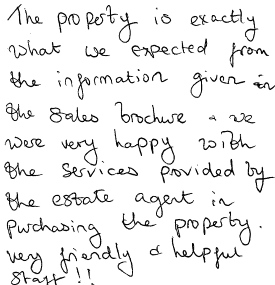 The property is exactly
what we expected from
the information given in
the sales brochure & we
were very happy with
the services provided by
the estate agent in
purchasing the property.
very friendly & helpful
staff!!